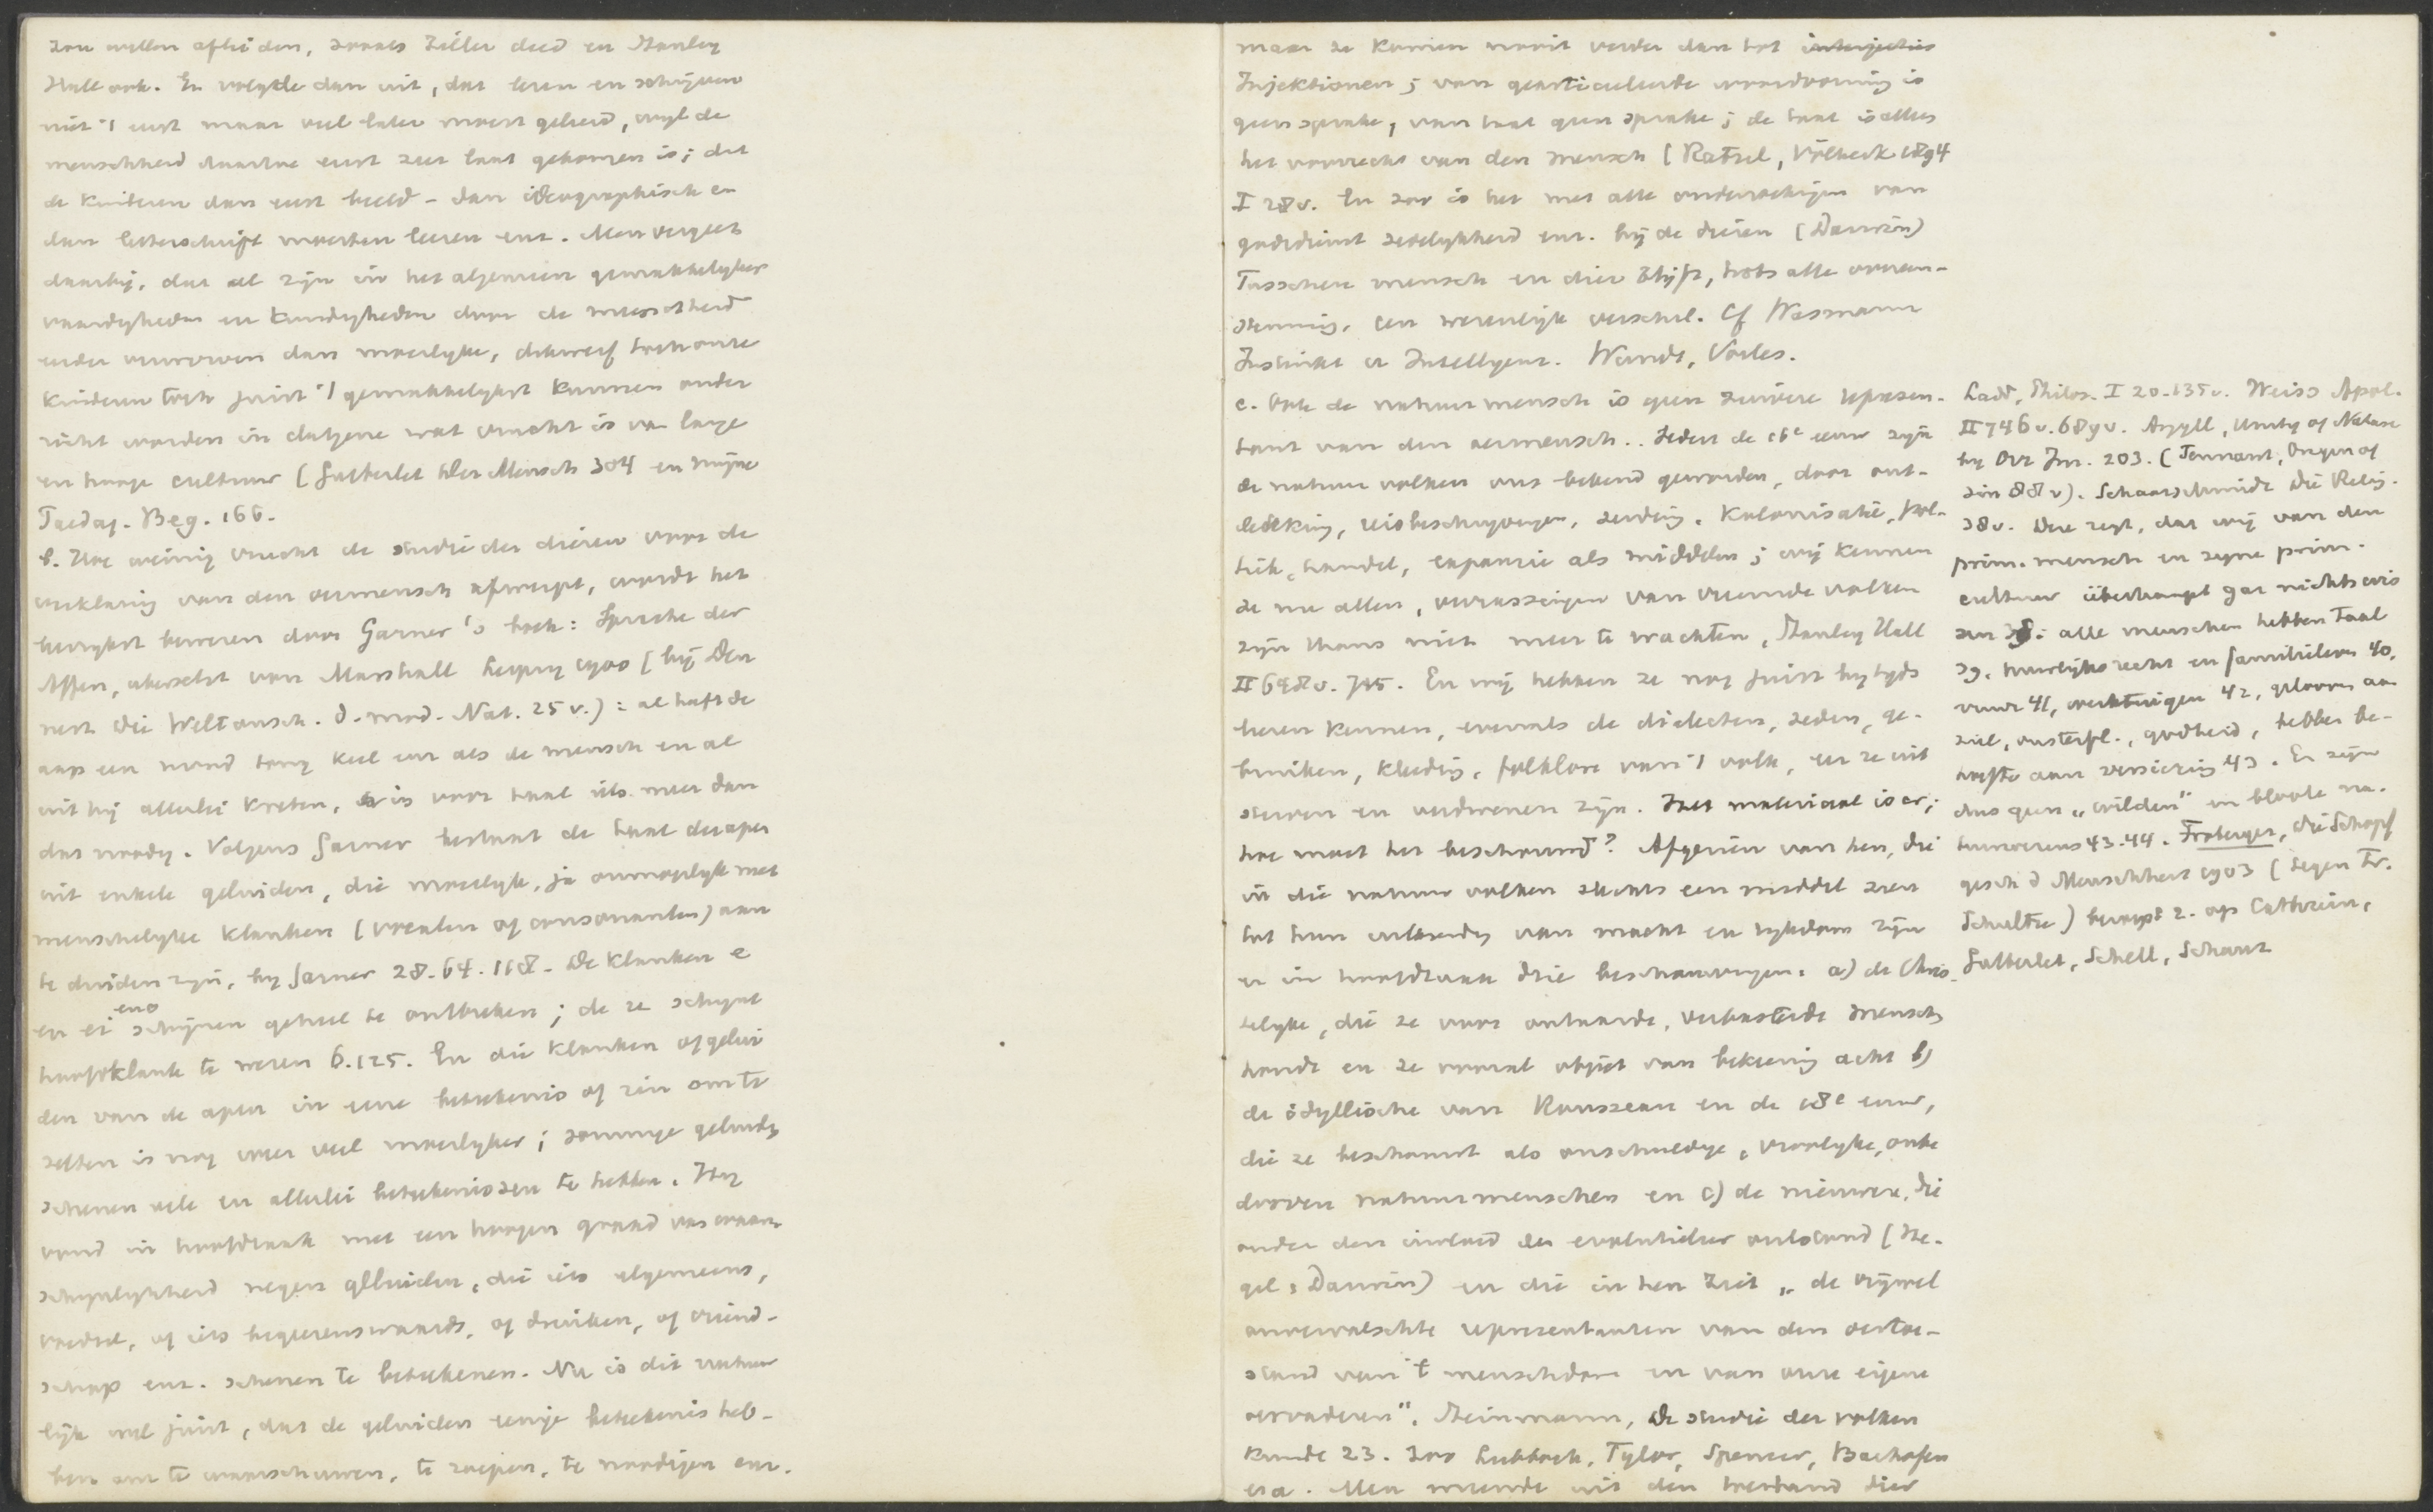 zou willen afleiden, zooals Ziller deed en Stanley
Hall ook. Er volgde dan uit, dat lezen en schrijven
niet 't eerst maar veel later moest geleerd, wijl de
menschheid daartoe eerst zeer laat gekomen is; dat
de kinderen dan eerst beeld - dan ideographisch en
dan letterschrift moesten leeren enz. Men vergeet
daarbij, dat al zijn in het algemeen gemakkelyker
vaardigheden en kundigheden door de menschheid
eerder verworven dan moeilyke, dikwerf toch onze
kinderen toch juist 't gemakkelykst kunnen onder
richt worden in datgene wat vrucht is van lange
en hooge cultuur (Gutberlet Der Mensch 304 en mijne
Paedag. Beg. 166.
b. Hoe weinig vrucht de studie der dieren voor de
verklaring van den oermensch afwerpt, wordt het
bewezen door Garner's boek: Sprache der
Affen, übersetzt von Marshall Leipzig 1900 (bij Den
nert Die Weltansch. d. mod. Nat. 25 v.): al heeft de
aap een mond tong keel enz als de mensch en al
uit hij allerlei kreten, er is voor taal iets meer dan
dat noodig. Volgens Garner bestaat de taal der apen
uit enkele geluiden, die moeilyk, ja onmogelyk met
menschelyke klanken (vocalen of consonanten) aan
te duiden zijn, by Garner 28. 64. 118. De klanken e
en ei en o schijnen geheel te ontbreken; de oe schynt
hoofdklank te wezen 6. 125. En die klanken of gelui
den van de apen in eene beteekenis of zin om te
zetten is nog veel moeilyker; sommige geluiden
schenen vele en allerlei beteekenissen te hebben. Hij
vond in hoofdzaak met een hoogen graad van waar
schynlykheid negen geluiden, die iets algemeens,
voedsel, of iets begeerenswaards, of drinken, of vriend-
schap enz. schenen te beteekenen. Nu is dit natuur
lijk wel juist, dat de geluiden eenige beteekenis heb-
ben om te waarschuwen, te roepen, te noodigen enz.
maar ze komen nooit verder dan tot interjecties
Injektionen; van gearticuleerde woordvorming is
geen sprake, van taal geen sprake; de taal is alles
het voorrecht van den mensch (Ratzel, Völkerk 1894
I 28 v. En zoo is het met alle onderzoekingen van
godsdienst zedelykheid enz. bij de dieren (Darwin)
Tusschen mensch en dier blijft, trots alle overeen-
stemming, een wezenlijk verschil. Cf Wasmann
Instinkt u Intelligenz. Wundt, Vorles.
c. Ook de natuurmensch is geen zuivere represen-
tant van den oermensch. Sedert de 16e eeuw zijn
de natuurvolken ons bekend geworden, door ont-
dekking, reisbeschryvingen, zending, kolonisatie, poli-
tiek, handel, expansie als middelen; wij kennen
ze nu allen, verrassingen van vreemde volken
zijn thans niet meer te wachten, Stanley Hall
II 648 v. 715. En wij hebben ze nog juist bytyds
leeren kennen, evenals de dialecten, zeden, ge-
bruiken, kleeding, folklore van 't volk, eer ze uit
sterven en verdwenen zijn. Het materiaal is er;
hoe moet het beschouwd? Afgezien van hen, die
in die natuurvolken slechts een middel zien
tot hun uitbreiding van macht en rykdom zijn
er in hoofdzaak drie beschouwingen: a) de Chris-
telyke, die ze voor ontaarde, verbasterde menschen
houdt en ze vooral object van bekeering acht b)
de idyllische van Rousseau en de 18e eeuw,
die ze beschouwt als onschuldige, vroolyke, onbe
dorven natuurmenschen en c) de nieuwere, die
onder den invloed der evolutieleer ontstond (He-
gel, Darwin) en die in hen ziet „de vrijwel
onvervalschte representanten van den oertoe-
stand van 't menschdom en van onze eigene
oervaderen". Steinmann, De studie der volken
kunde 23. Zoo Lubbock, Tylor, Spencer, Bachofen
e.a. Men meende uit den toestand dier
Ladd, Philos. I 20. 135 v. Weiss Apol.
II 746 v. 689 v. Argyll, Unity of Nature
by Orr Im. 203. (Tennant, Origin of
sin 88 v). Schaarschmidt Die Relig.
38 v. Deze zegt, dat wij van den
prim. mensch en zijne prim.
cultuur überhaupt gar nichts wis
sen 38: alle menschen hebben taal
39, huwelijksrecht en familieleven 40,
vuur 41, werktuigen 42, geloof aan
ziel, onsterfl., godheid, hebben be-
hoefte aan versiering 43. Er zijn
dus geen „wilden" en bloote na-
tuurwezens 43. 44. Froberger, die Schöpf
gesch d Menschheit 1903 (tegen Fr.
Schultze) beroept z. op Cathrein,
Gutberlet, Schell, Schanz